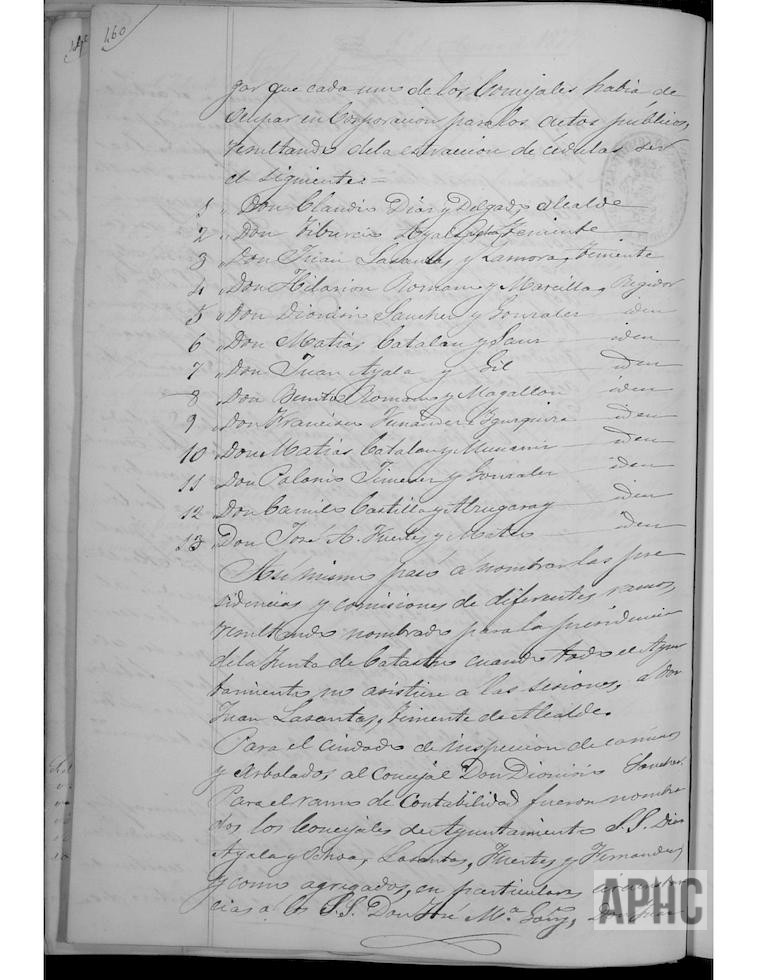 460
gar que cada uno de los Concejales habia de
ocupar en Corporacion para los actos públicos,
resultando de la estraccion de cédulas ser
el siguiente=
1 " Don Claudio Dias y Delgado, Alcalde
2 " Don Tiburcio Ayala Teniente
3 " Don Juan Lasantas y Zamora, Teniente
4 " Don Hilarion Romano y Marcilla, Regidor
5 " Don Dionisio Sanchez y Gonzalez iden
6 " Don Matias Catalan y Sanz iden
7 " Don Juan Ayala y Gil iden
8 " Don Benito Romano y Magallon iden
9 " Don Francisco Fernandez iden
10 " Don Matias Catalan y iden
11 " Don Polonio Jimenez y Gonzalez iden
12 " Don Camilo Castilla y iden
13 " Don José A. Fuertes y Mateo iden
Asi mismo pasó a nombrar las pre
sidencias y comisiones de diferentes ramos,
resultando nombrado para la presidencia
de la Junta de Catastro cuando todo el Ayun
tamiento no asistiere a las sesiones, a Don
Juan Lasantas, Teniente de Alcalde.
Para el cuidado de inspeccion de caminos
y Arbolados, al Concejal Don Dionisio Sanchez.
Para el ramo de Contabilidad fueron nombra
dos los Concejales de Ayuntamiento S.S. Dias
Ayala y Ochoa, Lasantas, Fuertes y Fernandez,
y como agregados, en particulares circunstan
cias a los S.S. Don José M.ª Don Juan
APHC